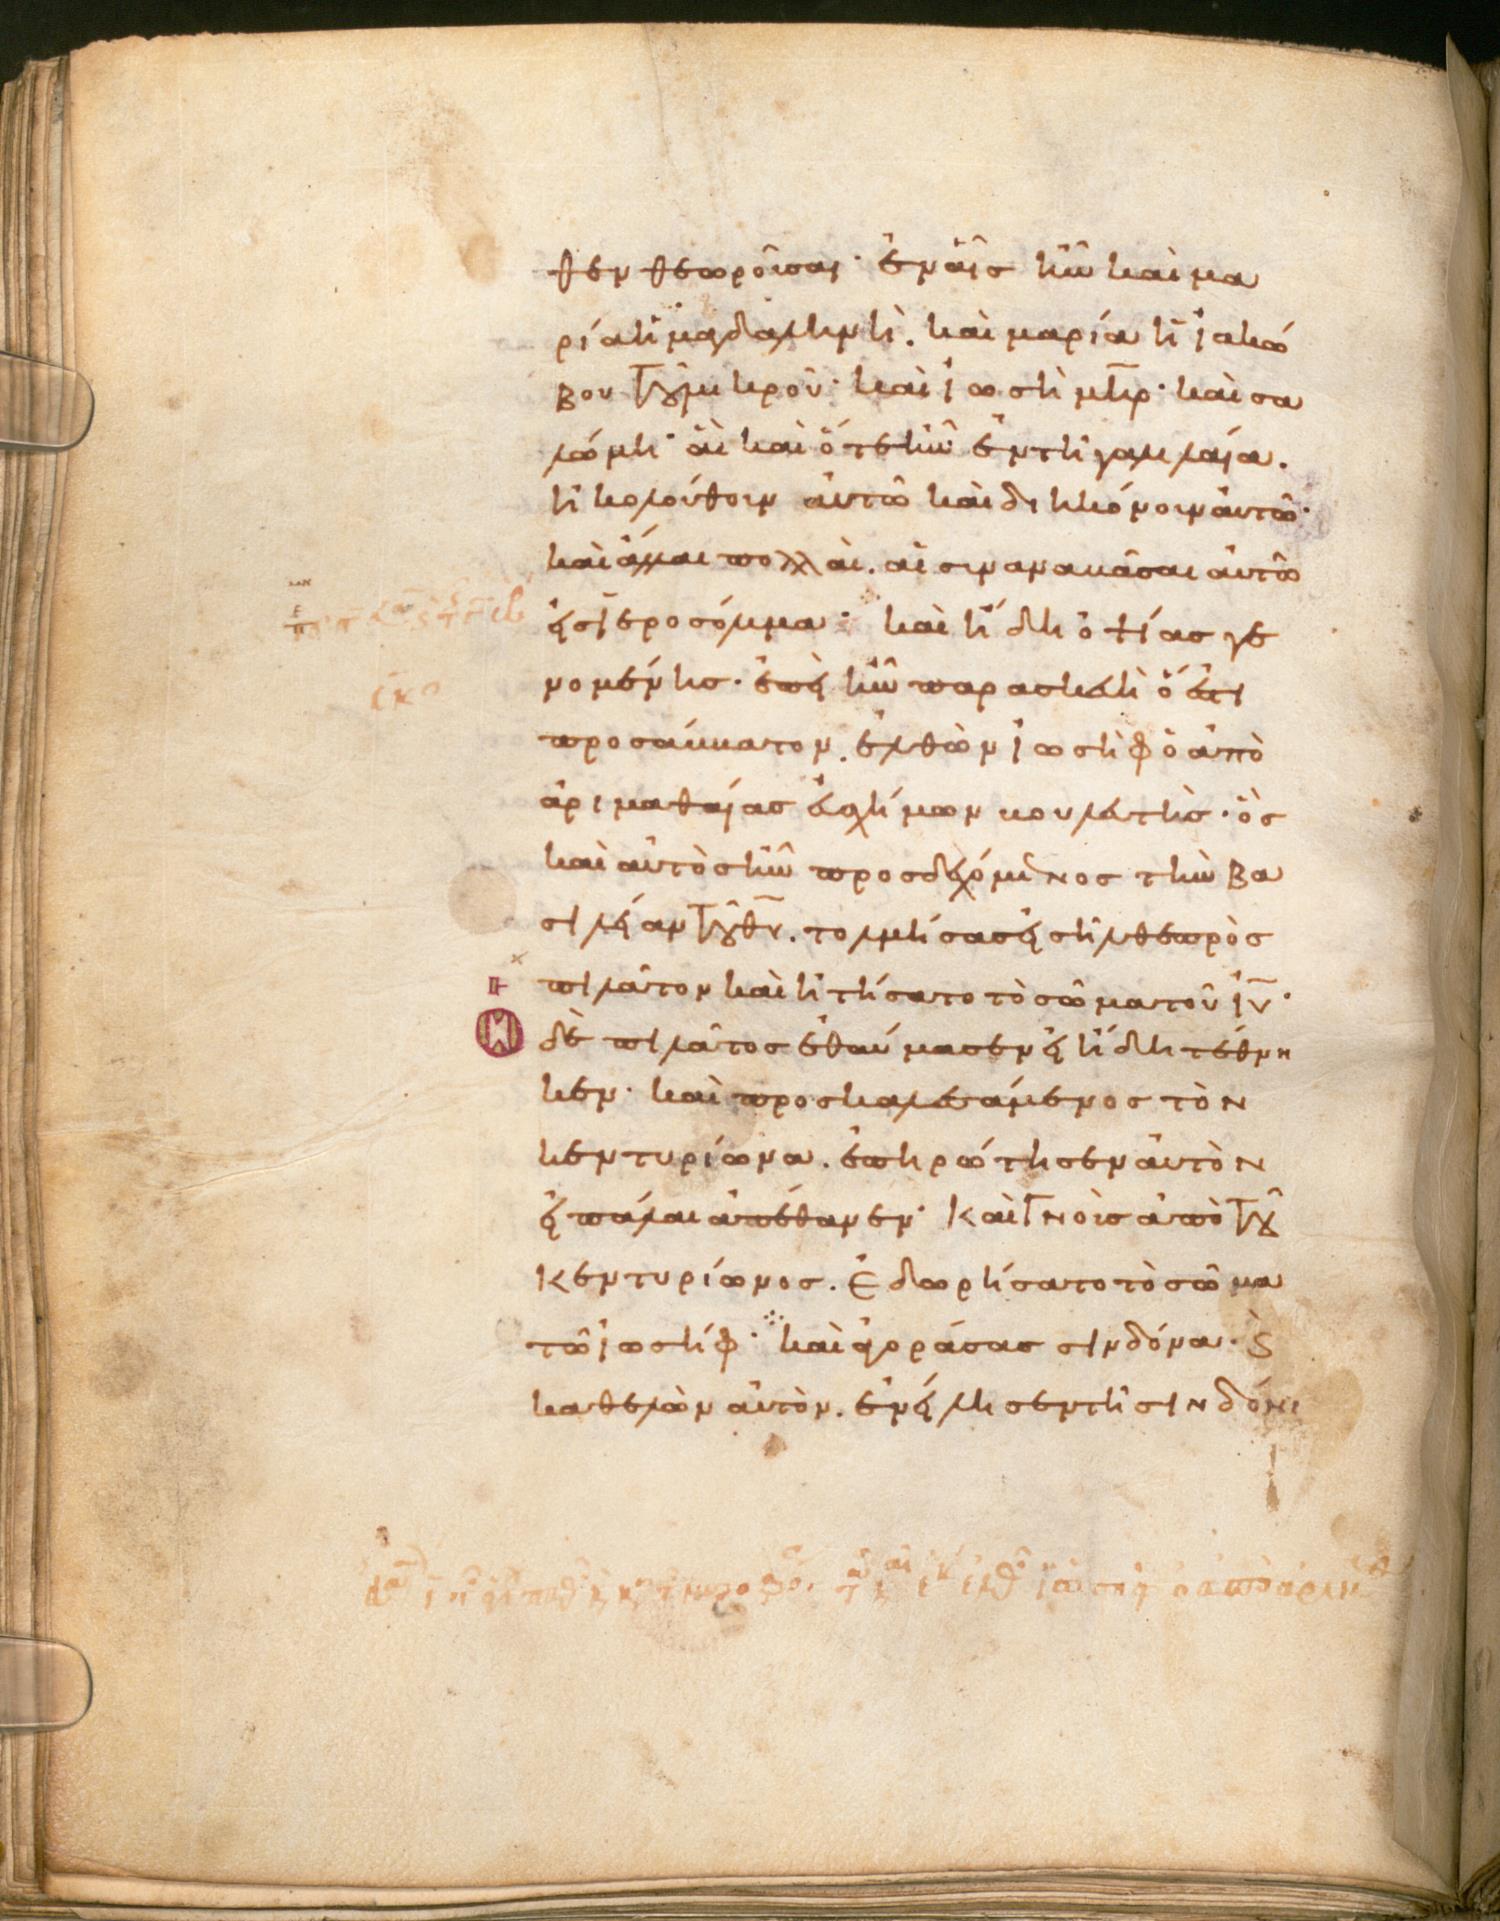 θεν θεωροῦσαι· ἐν αἷς ἦν καὶ μα
ρία ἡ μαγδαληνὴ. καὶ μαρία ἡ ἰακώ
βου τοῦ μικροῦ· καὶ ἰωσὴ μηρ· καὶ σα
λώμη· αἳ καὶ ὅτε ἦν ἐν τῇ γαλιλαία.
ἠκολούθουν αὐτῶ καὶ διηκόνουν αὐτῶ·
καὶ ἄλλαι πολλαὶ. αἱ συναναβᾶσαι αὐτῶ
εἰς ἱεροσόλυμα· καὶ ἤδη ὀψίας γε
νομένης. ἐπεὶ ἦν παρασκευὴ ὅ ἐστι
προσάββατον. ἐλθὼν ἰωσὴφ ὁ ἀπὸ
ἀριμαθαίας εὐσχήμων βουλευτὴς. ὃς
καὶ αὐτὸς ἦν προσδεχόμενος τὴν βα
σιλείαν τοῦ θυ. τολμήσας εἰσῆλθε πρὸς
πιλᾶτον καὶ ἠτήσατο τὸ σῶμα τοῦ ιυ·
Ὁ δὲ πιλᾶτος ἐθαύμασεν εἰ ἤδη τέθνη
κεν· καὶ προσκαλεσάμενος τὸν
κεντυρίωνα. ἐπηρώτησεν αὐτὸν
εἰ πάλαι ἀπέθανεν· καὶ γνοὺς ἀπὸ τοῦ
κεντυρίωνος. ἐδωρήσατο τὸ σῶμα
τῶ ἰωσήφ· καὶ ἀγοράσας σινδόνα. ϗ
καθελὼν αὐτὸν. ἐνείλησεν τῇ σινδόνι